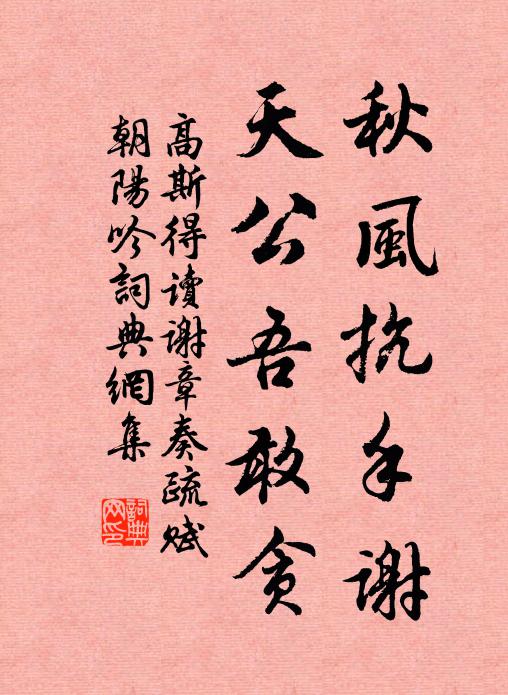 秋風抗手謝
天公吾敢貪
高斯得讀謝章奏疏賦
朝陽吟詞典網集
詞典
网印